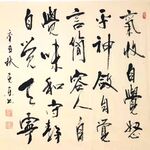 氣收自覺怒
平神斂自覺
言簡容人自
覺味和守靜
自覺天寧